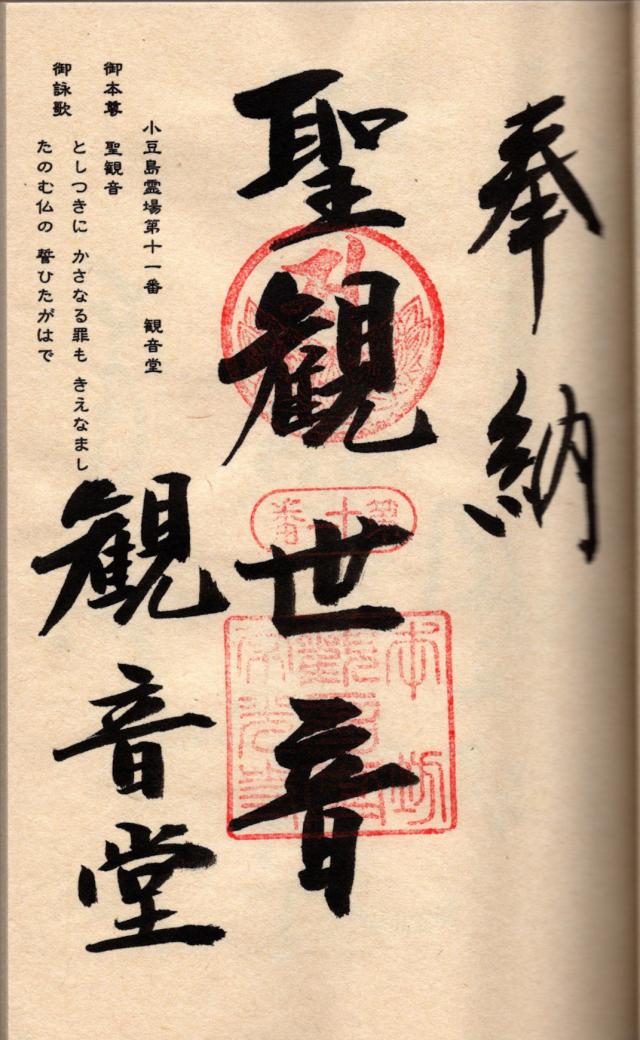 奉納
聖観世音
観音堂
小豆島霊場第十一番　観音堂
御本尊　聖観音
御詠歌　としつきに　かさなる罪も　きえなまし
たのむ仏の　誓ひたがはで